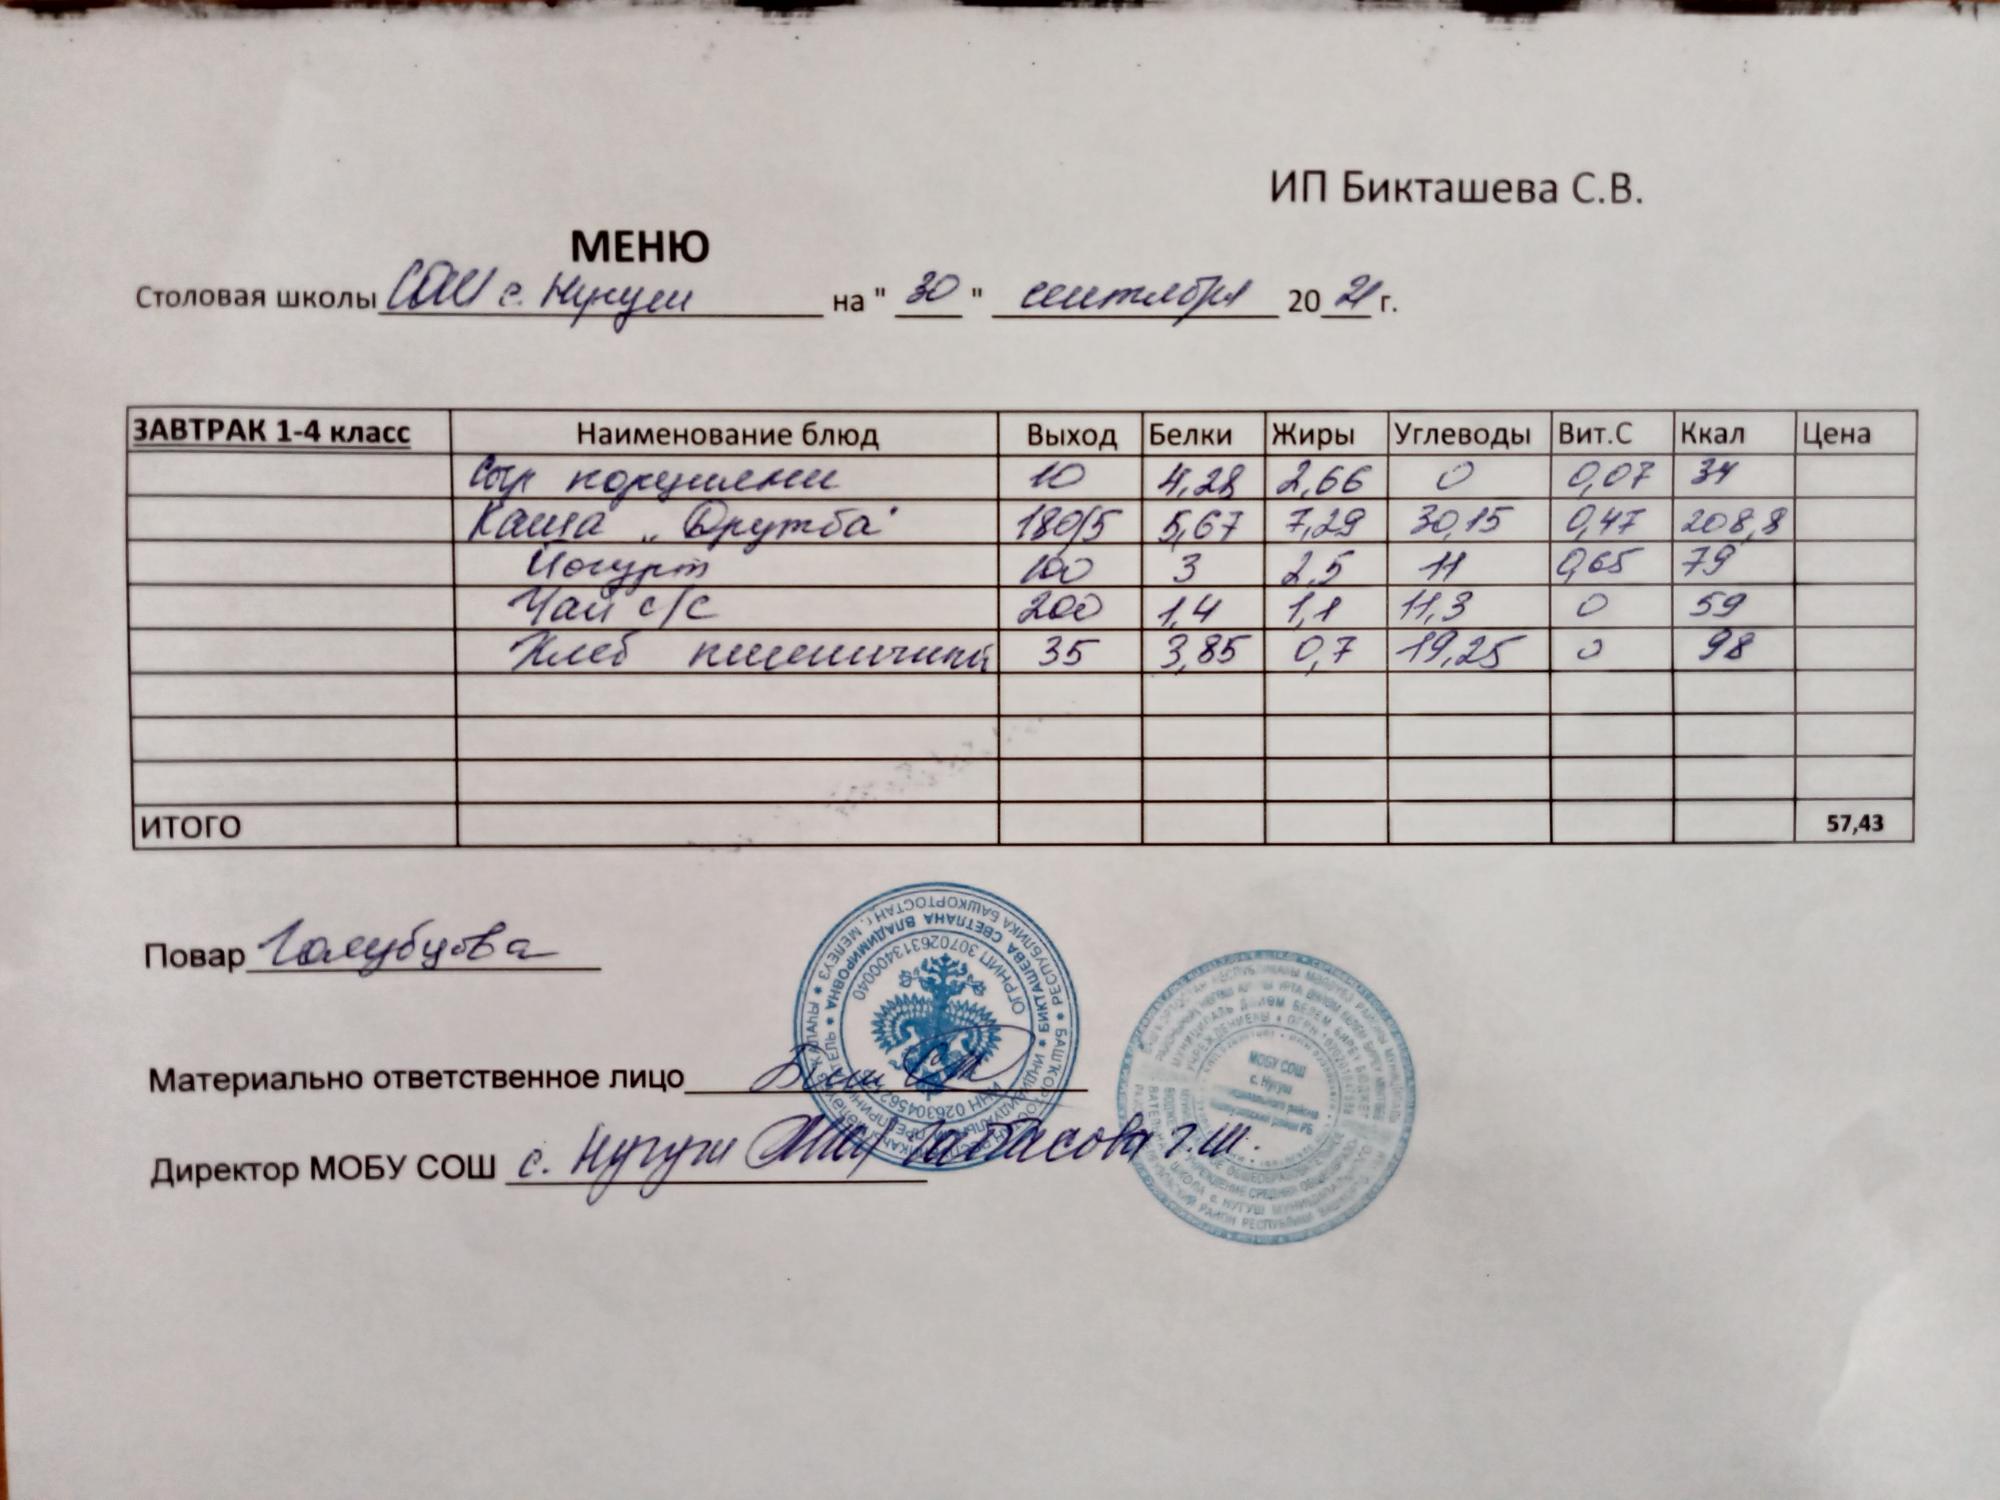 ИП Бикташева С.В.
МЕНЮ
Столовая школы СОШ с. Нугуш на " 30 " сентября 20 21 г.
ЗАВТРАК 1-4 класс Наименование блюд Выход Белки Жиры Углеводы Вит.С Ккал Цена
Сыр порциями 10 4,28 2,66 0 0,07 34
Каша „Дружба" 180/5 5,67 7,29 30,15 0,47 208,8
Йогурт 100 3 2,5 11 0,65 79
Чай с/с 200 1,4 1,1 11,3 0 59
Хлеб пшеничный 35 3,85 0,7 19,25 0 98
ИТОГО 57,43
Повар Голубцова
Материально ответственное лицо
Директор МОБУ СОШ с. Нугуш Габбасова Г.Ш.
РЕСПУБЛИКА БАШКОРТОСТАН г. МЕЛЕУЗ
БИКТАШЕВА СВЕТЛАНА ВЛАДИМИРОВНА
ОГРНИП 307026313400040
МОБУ СОШ
с. Нугуш